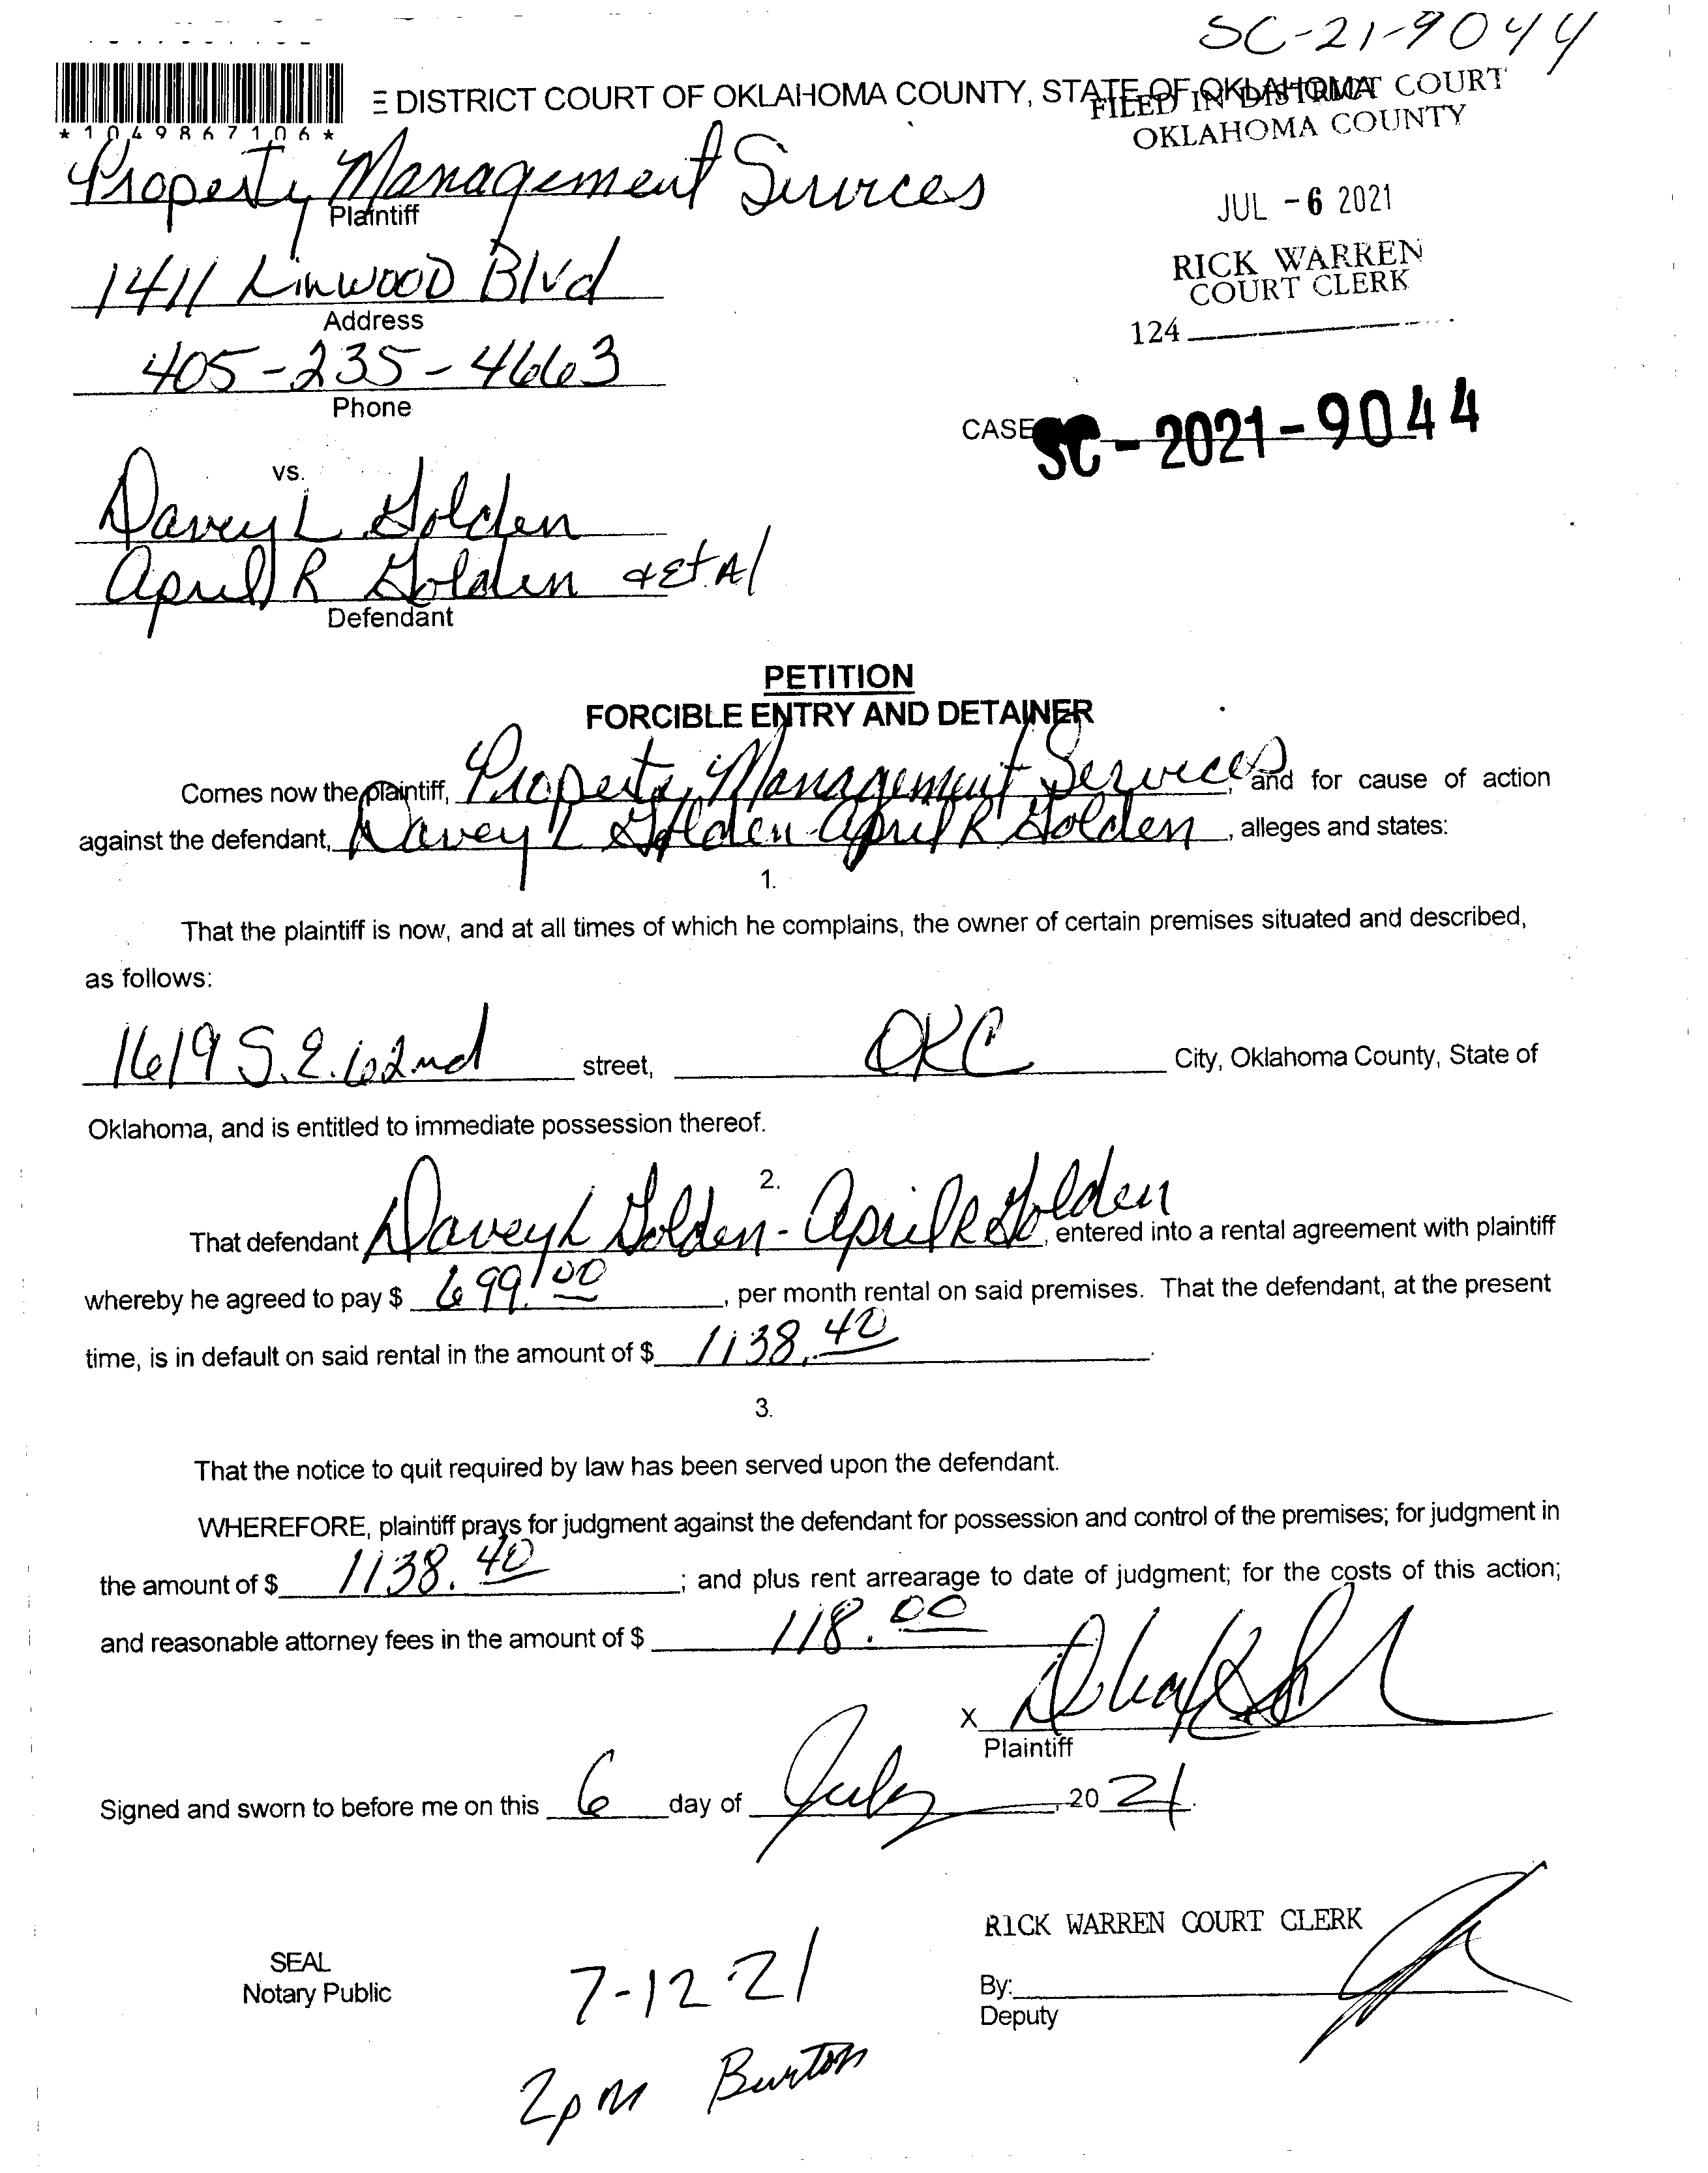 SC-21-9044
*1049867106*
DISTRICT COURT OF OKLAHOMA COUNTY, STATE OF OKLAHOMA
FILED IN DISTRICT COURT
OKLAHOMA COUNTY
Property Management Services
Plaintiff
JUL -6 2021
1411 Linwood Blvd
Address
RICK WARREN
COURT CLERK
124
405-235-4663
Phone
CASE SC-2021-9044
vs.
Davey L Golden
April R Golden & Et Al
Defendant
PETITION
FORCIBLE ENTRY AND DETAINER
Comes now the plaintiff, Property Management Services, and for cause of action
against the defendant, Davey L Golden - April R Golden, alleges and states:
1.
That the plaintiff is now, and at all times of which he complains, the owner of certain premises situated and described,
as follows:
1619 S.E. 62nd street, OKC City, Oklahoma County, State of
Oklahoma, and is entitled to immediate possession thereof.
2.
That defendant Davey L Golden - April R Golden, entered into a rental agreement with plaintiff
whereby he agreed to pay $ 699.00, per month rental on said premises. That the defendant, at the present
time, is in default on said rental in the amount of $ 1138.40.
3.
That the notice to quit required by law has been served upon the defendant.
WHEREFORE, plaintiff prays for judgment against the defendant for possession and control of the premises; for judgment in
the amount of $ 1138.40; and plus rent arrearage to date of judgment; for the costs of this action;
and reasonable attorney fees in the amount of $ 118.00
X
Plaintiff
Signed and sworn to before me on this 6 day of July, 2021.
RICK WARREN COURT CLERK
SEAL
Notary Public
7-12-21
By:
Deputy
2pm Burton